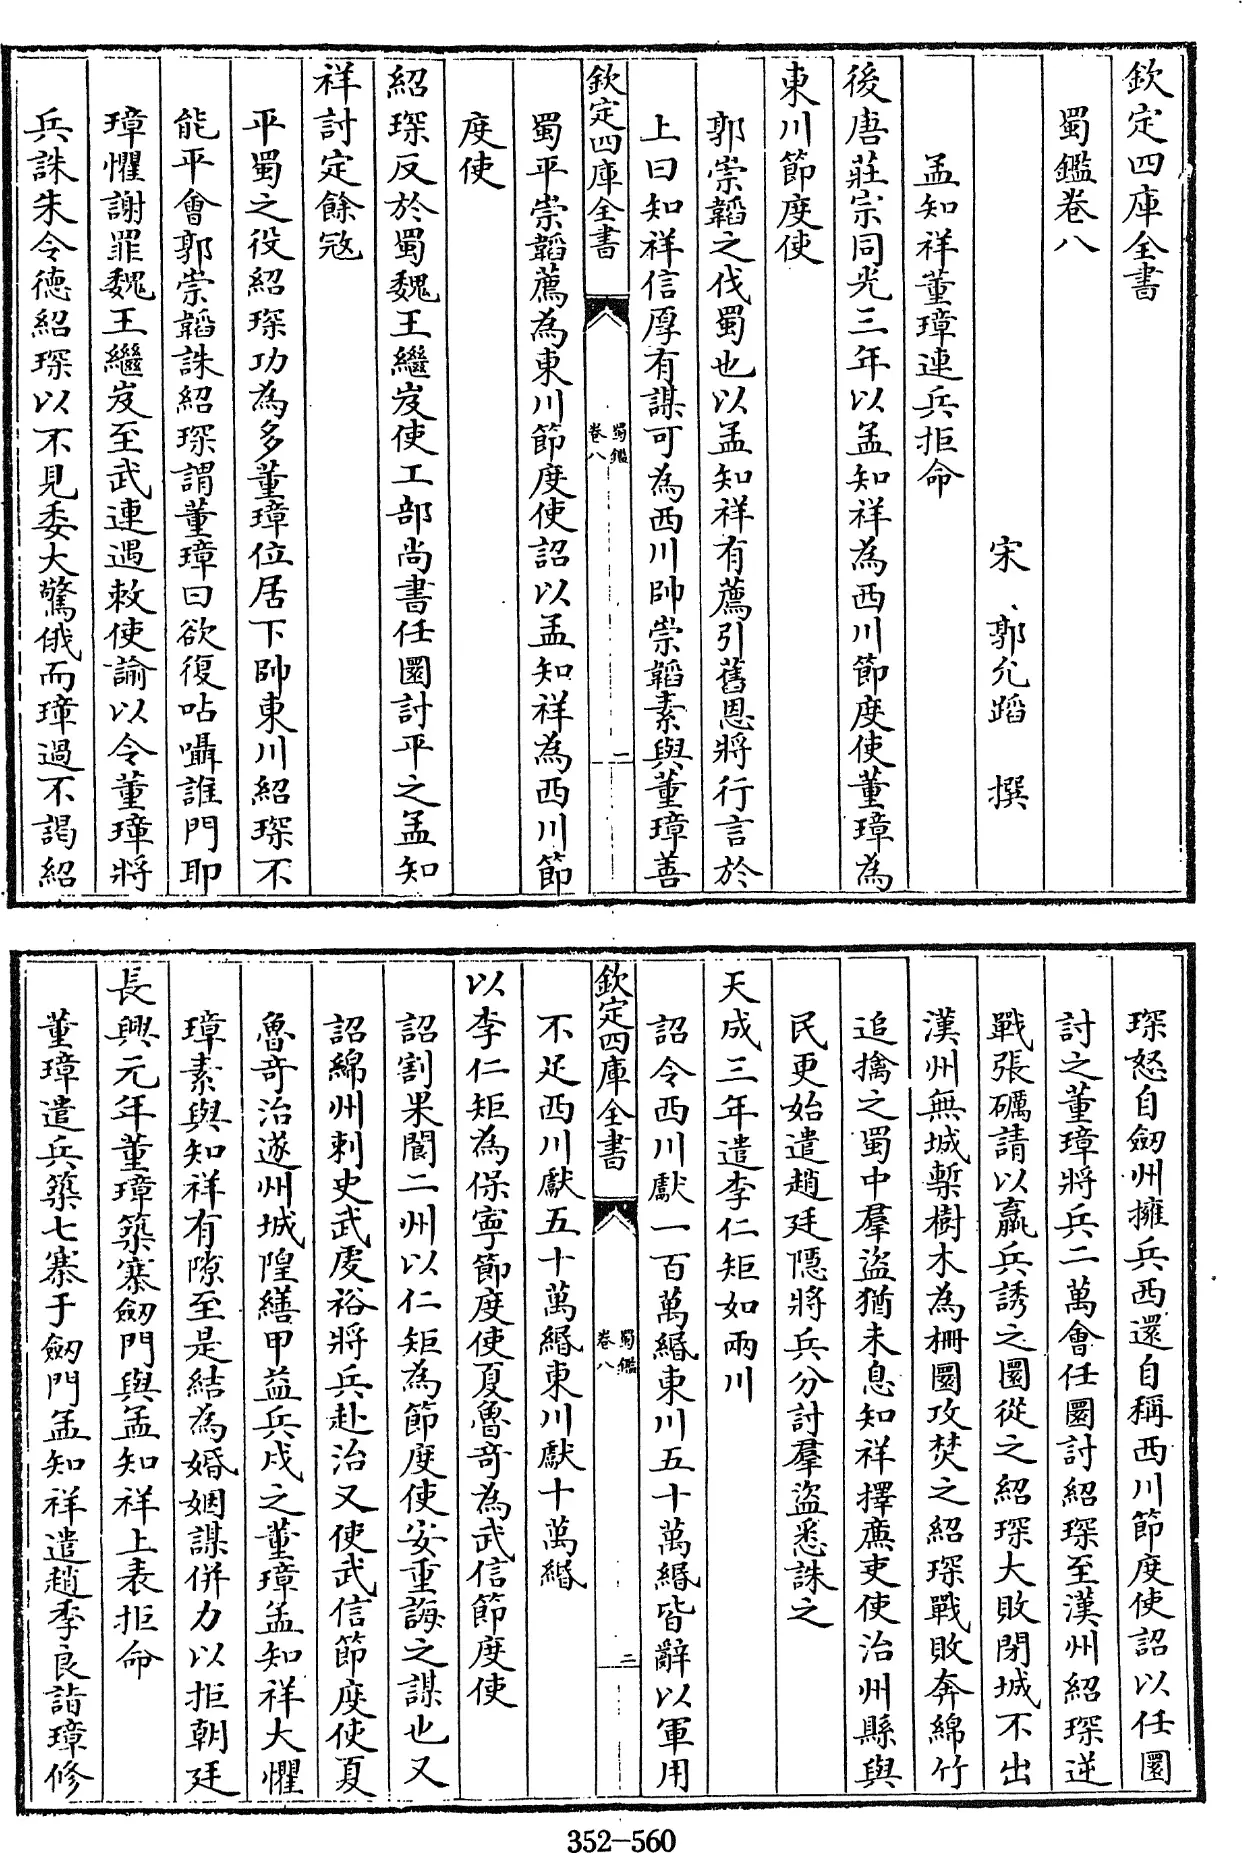 欽定四庫全書
蜀鑑卷八
宋 郭允蹈 撰
孟知祥董璋連兵拒命
後唐莊宗同光三年以孟知祥為西川節度使董璋為
東川節度使
郭崇韜之伐蜀也以孟知祥有薦引舊恩將行言於
上曰知祥信厚有謀可為西川帥崇韜素與董璋善
欽定四庫全書
蜀鑑
卷八
二
蜀平崇韜薦為東川節度使詔以孟知祥為西川節
度使
紹琛反於蜀魏王繼岌使工部尚書任圜討平之孟知
祥討定餘冦
平蜀之役紹琛功為多董璋位居下帥東川紹琛不
能平會郭崇韜誅紹琛謂董璋曰欲復呫囁誰門耶
璋懼謝罪魏王繼岌至武連遇敕使諭以令董璋將
兵誅朱令德紹琛以不見委大驚俄而璋過不謁紹
琛怒自劒州擁兵西還自稱西川節度使詔以任圜
討之董璋將兵二萬會任圜討紹琛至漢州紹琛逆
戰張礪請以羸兵誘之圜從之紹琛大敗閉城不出
漢州無城塹樹木為柵圜攻焚之紹琛戰敗奔綿竹
追擒之蜀中羣盜猶未息知祥擇廉吏使治州縣與
民更始遣趙廷隱將兵分討羣盜悉誅之
天成三年遣李仁矩如兩川
詔令西川獻一百萬緡東川五十萬緡皆辭以軍用
欽定四庫全書
蜀鑑
卷八
三
不足西川獻五十萬緡東川獻十萬緡
以李仁矩為保寧節度使夏魯奇為武信節度使
詔割果閬二州以仁矩為節度使安重誨之謀也又
詔綿州刺史武虔裕將兵赴治又使武信節度使夏
魯奇治遂州城隍繕甲益兵戍之董璋孟知祥大懼
璋素與知祥有隙至是結為婚姻謀併力以拒朝廷
長興元年董璋築寨劒門與孟知祥上表拒命
董璋遣兵築七寨于劒門孟知祥遣趙季良詣璋修
352-560